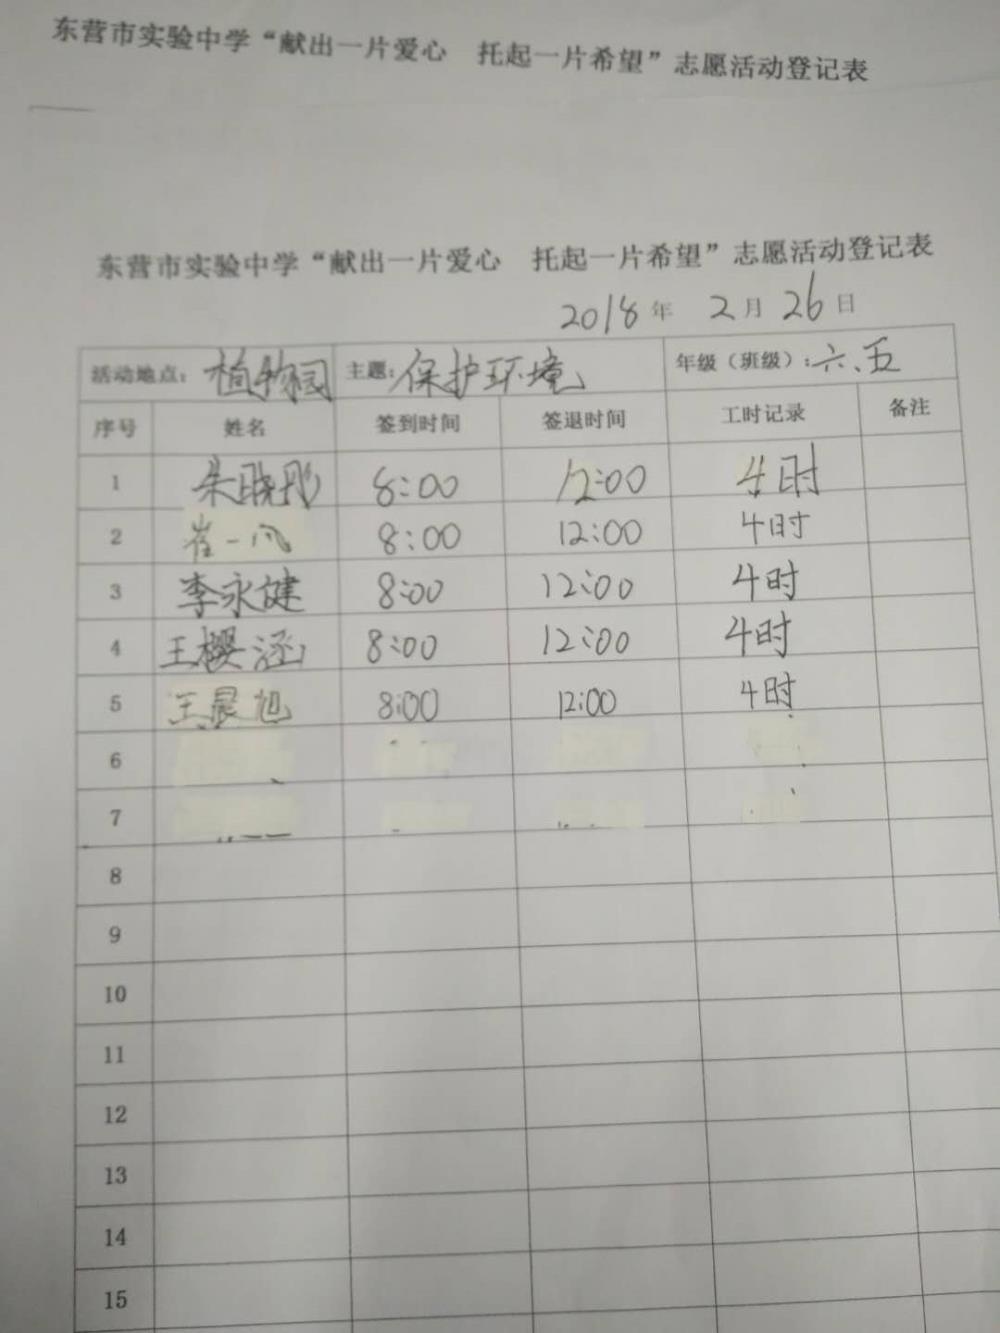 东营市实验中学“献出一片爱心 托起一片希望”志愿活动登记表
东营市实验中学“献出一片爱心 托起一片希望”志愿活动登记表
2018年 2月26日
活动地点: 植物园 主题: 保护环境 年级（班级）: 六、五
序号 姓名 签到时间 签退时间 工时记录 备注
1 朱晓彤 8:00 12:00 4时
2 崔一 8:00 12:00 4时
3 李永健 8:00 12:00 4时
4 王樱涵 8:00 12:00 4时
5 王晨旭 8:00 12:00 4时
6
7
8
9
10
11
12
13
14
15